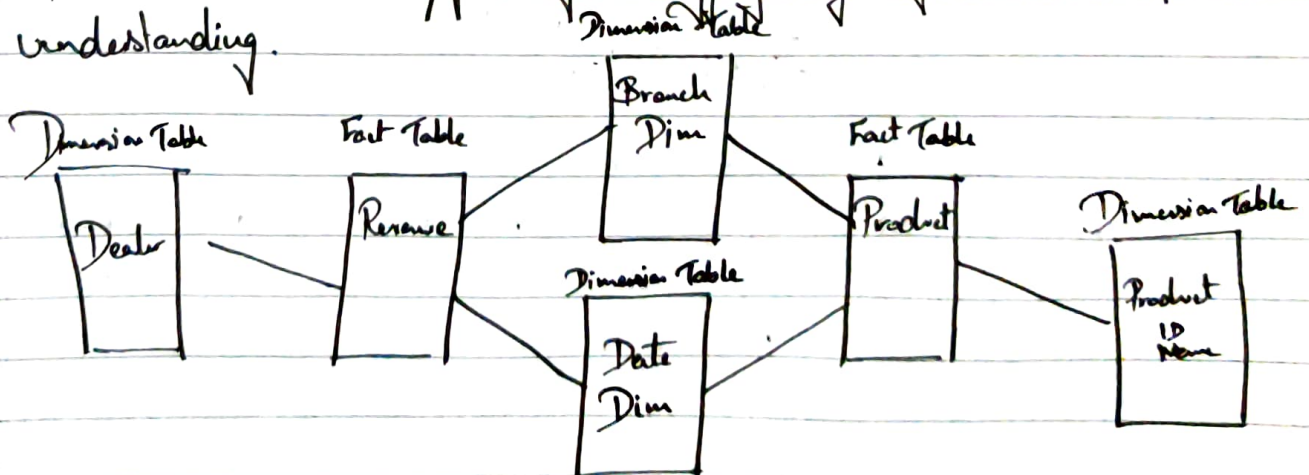 understanding.
Dimension Table
Branch
Dim
Dimension Table
Dealer
Fact Table
Revenue
Fact Table
Product
Dimension Table
Product
ID
Name
Dimension Table
Date
Dim